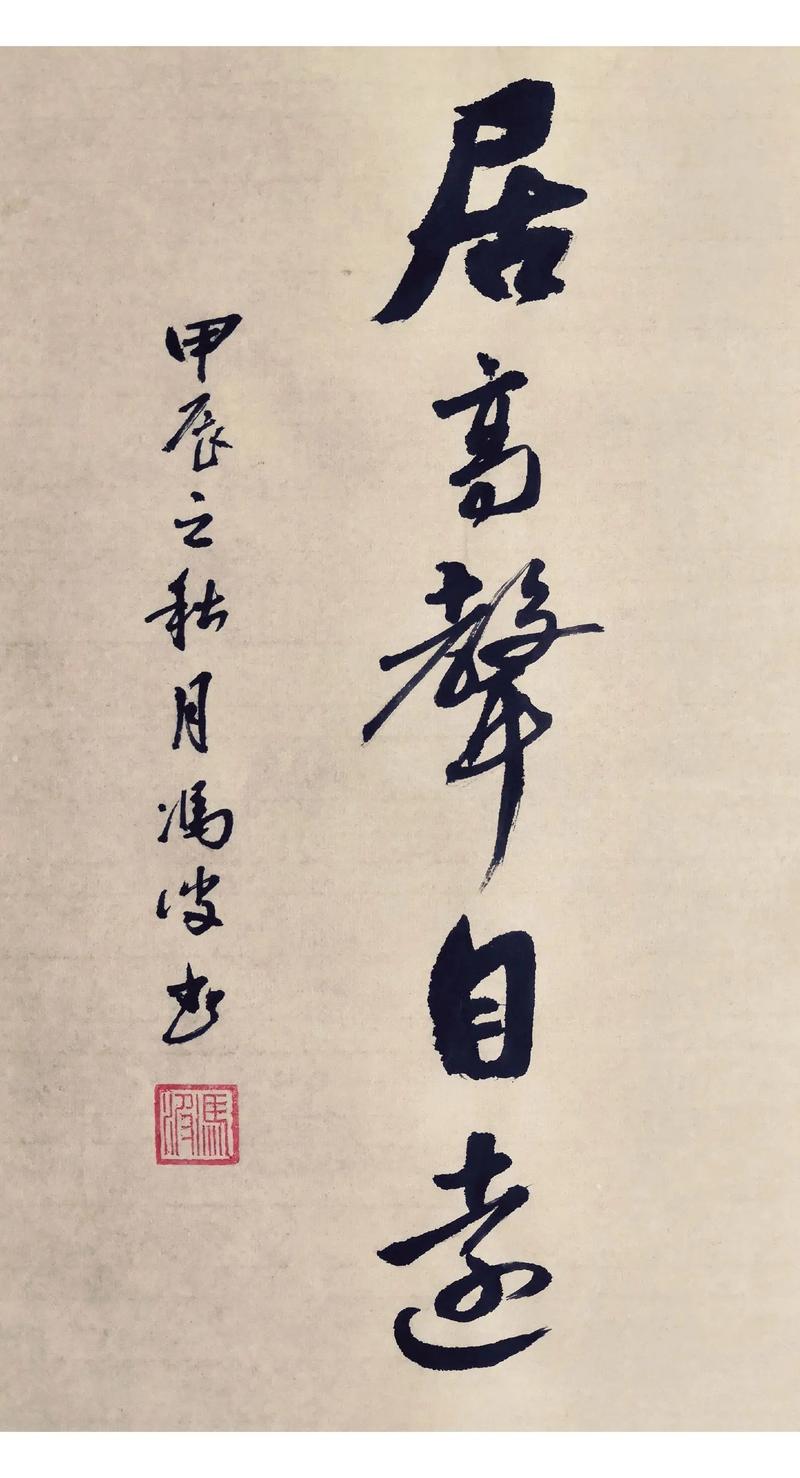 居高聲自遠
甲辰之秋月馮波书
馮波